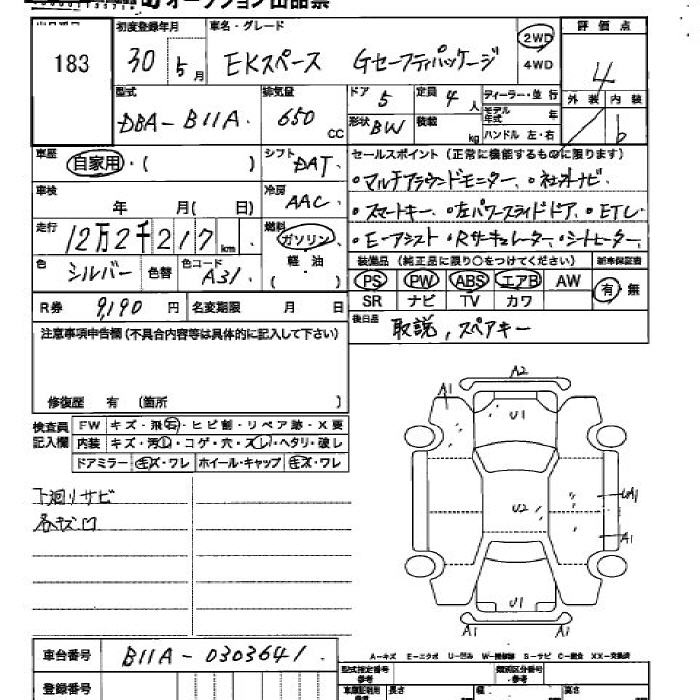 オークション出品票
183
初度登録年月
30 5月
車名・グレード
EKスペース Gセーフティパッケージ
2WD
4WD
評価点
4
型式
DBA-B11A
排気量
650 CC
ドア 5
定員 4人
形状 BW
積載 kg
ディーラー・並行
モデル年式 年
ハンドル 左・右
外装 内装
b
車歴
自家用・( )
シフト DAT
セールスポイント (正常に機能するものに限ります)
・マルチアラウンドモニター、・社外ナビ
・スマートキー、・左パワースライドドア、・ETC
・E-アシスト ・Rサーキュレーター、・シートヒーター、
車検
年 月( 日)
冷房 AAC
走行
12万2千217km
燃料
ガソリン
軽・油
( )
色 シルバー 色替 色コード A31
装備品 (純正品に限り○をつけてください) 新車保証書
PS PW ABS エアB AW 有・無
SR ナビ TV カワ
R券 9,190円 名変期限 月 日
後日品 取説, スペアキー
注意事項申告欄 (不具合内容等は具体的に記入して下さい)
修復歴 有 (箇所 )
検査員記入欄
FW キズ・飛石・ヒビ割・リペア跡・X要
内装 キズ・汚れ・コゲ・穴・スレ・ヘタリ・破し
ドアミラー キズ・ワレ ホイール・キャップ キズ・ワレ
下廻りサビ
各キズ凹
A2
A1
U1
U2
UA1
A1
U1
A1 A1
車台番号 B11A-0303641
A-キズ E-エクボ U-凹み W-補修跡 S-サビ C-腐食 XX-交換済
登録番号
型式指定番号 参考
類別区分番号 参考
長さ 幅 高さ